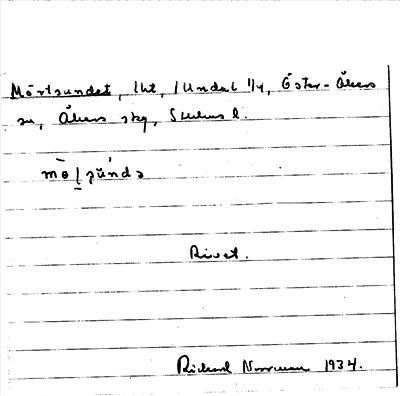 Mörtsundet, lht, 1 Undal 1/4, Öster-Åkers
sn, Åkers skg, Sthlms l.
Rivet.
Richard Norrman 1934.